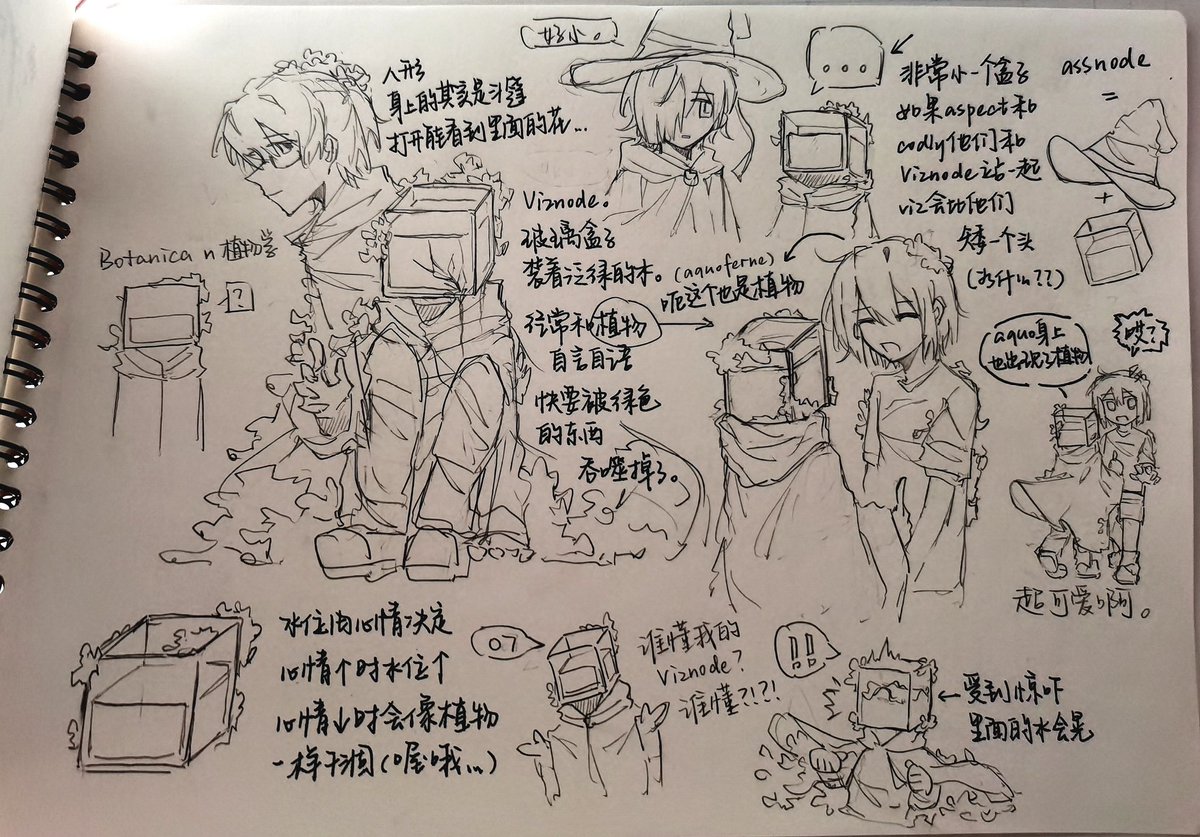 好小。
人形
身上的其实是斗篷
打开能看到里面的花...
...
非常小一个盒子
如果aspect和
codly他们和
Viznode站一起
viz会比他们
矮一个头
(为什么??)
assnode
=
+
Botanica n 植物学
?
Viznode。
玻璃盒子
装着泛绿的水。
经常和植物
自言自语
快要被绿色
的东西
吞噬掉了。
(aquoferne)
呃这个也是植物
aquo身上
也出现了植物
哎?
超可爱啊。
水位由心情决定
心情↑时水位↑
心情↓时会像植物
一样干涸(喔哦...)
07
谁懂我的
Viznode?
谁懂?!?!
!!
←受到惊吓
里面的水会晃